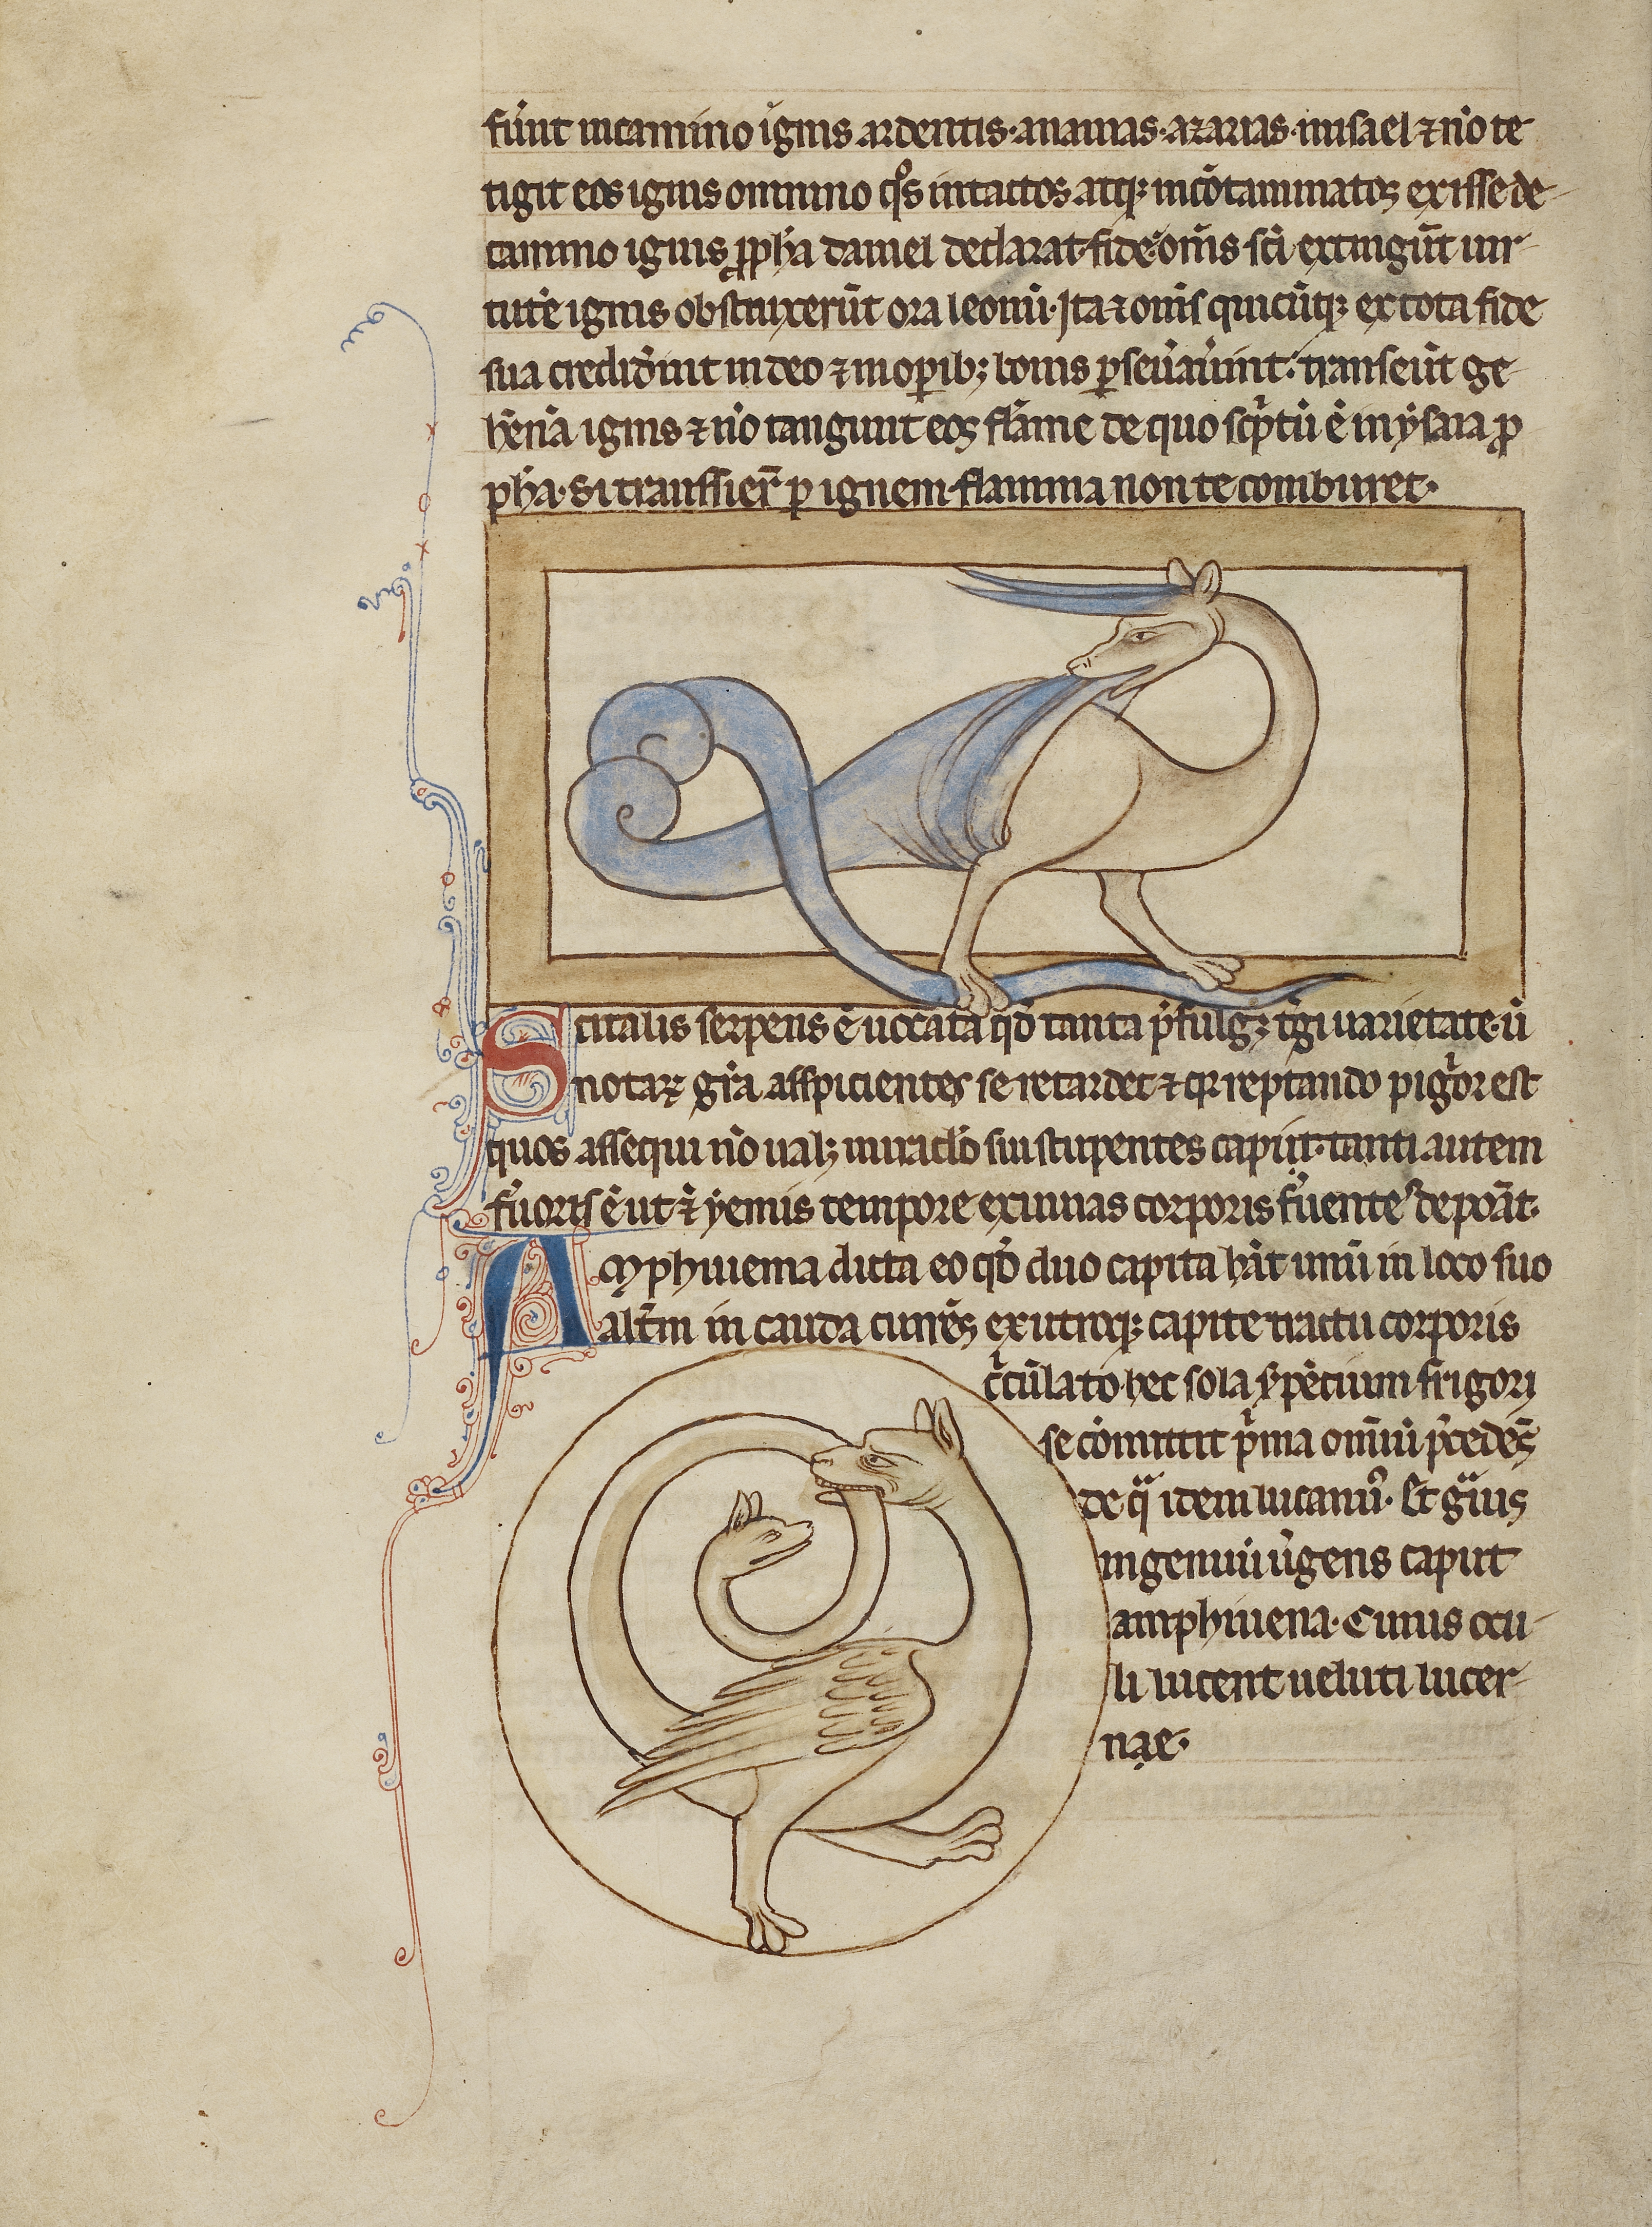 fu̅nt incamino ignis ardentis·ananias·azarias·misael ⁊ no̅ te
tigit eos ignis omnino qͦs intactos atqꝫ inco̅taminatos exisse de
camino ignis ꝓph̅a daniel declarat·fide·om̅s sc̅i extingu̅t uir
tute̅ ignis obstruxeru̅t ora leonu̅·Ita ⁊ om̅s quicu̅qꝫ ex tota fide
sua credid̅int in deo ⁊ in op̅ibꝫ bonis ꝑseu̅au̅int· transeu̅t ge
he̅na̅ ignis ⁊ no̅ tangunt eos fla̅me de quo sc͛ptu̅ e̅ in ysaia ꝓ
ph̅a·Si transsier̅ ꝑ ignem·flamma non te comburet·
Scitalis serpens e̅ uocata qd̅ tanta p͛fulgꝫ t͛gi uarietate·u̅
notaꝝ gr̅a asspicientes se retardet ⁊ qr reptando pig͛or est
quos assequi no̅ ualꝫ miraclo̅ sui stupentes capiit·tanti autem
fu̅oris e̅ ut ⁊ yemis tempore exuuias corporis fu̅entes depoa̅t·
Amphiuema dicta eo qd̅ duo capita ha̅t unu̅ in loco suo
alt̅m in cauda curre̅s ex utroqꝫ capite tractu corporis
c͛cu̅lato·hec sola s̅pe̅cium frigori
se co̅mittit p͛ma om̅iu̅ p͛cede̅s
de qͣ item lucanuꝰ· Et gͣuis
in geminu̅ u͛gens caput
amphiuena· Cuius ocu
li lucent ueluti lucer
nae·